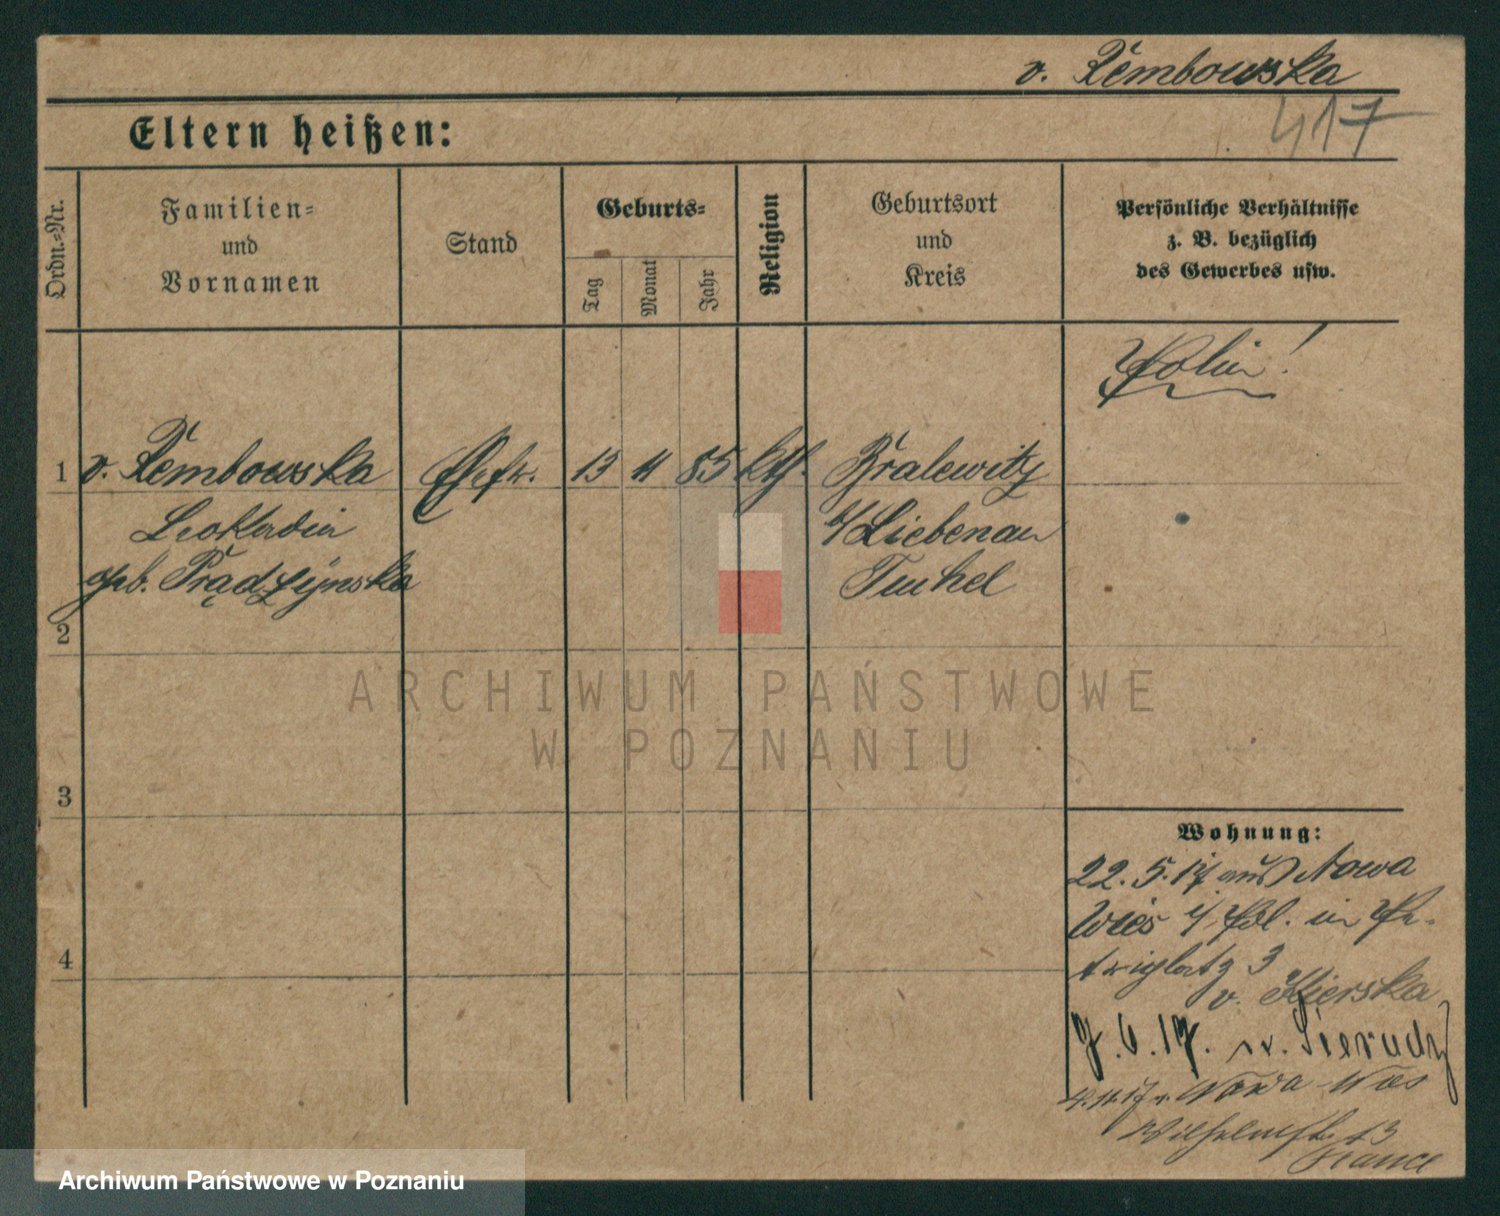 v. Rembowska
417
Eltern heißen:
Ordn.=Nr.
Familien=
und
Vornamen
Stand
Geburts=
Tag
Monat
Jahr
Religion
Geburtsort
und
Kreis
Persönliche Verhältnisse
z. B. bezüglich
des Gewerbes usw.
Polin!
1 v. Rembowska Ehefr. 13 11 85 kth. Bralewitz
Leokadia b/ Liebenau
geb. Prądzyńska Tuchel
2
3
4
Wohnung:
22. 5. 17 aus Nowa
Wies i/ Pol. in Pe-
triplatz 3
v.
7. 6. 17. n. Sierudz
4.11.17 v. Nowa Wies
Wilhelmstr. 13
ARCHIWUM PAŃSTWOWE
W POZNANIU
Archiwum Państwowe w Poznaniu